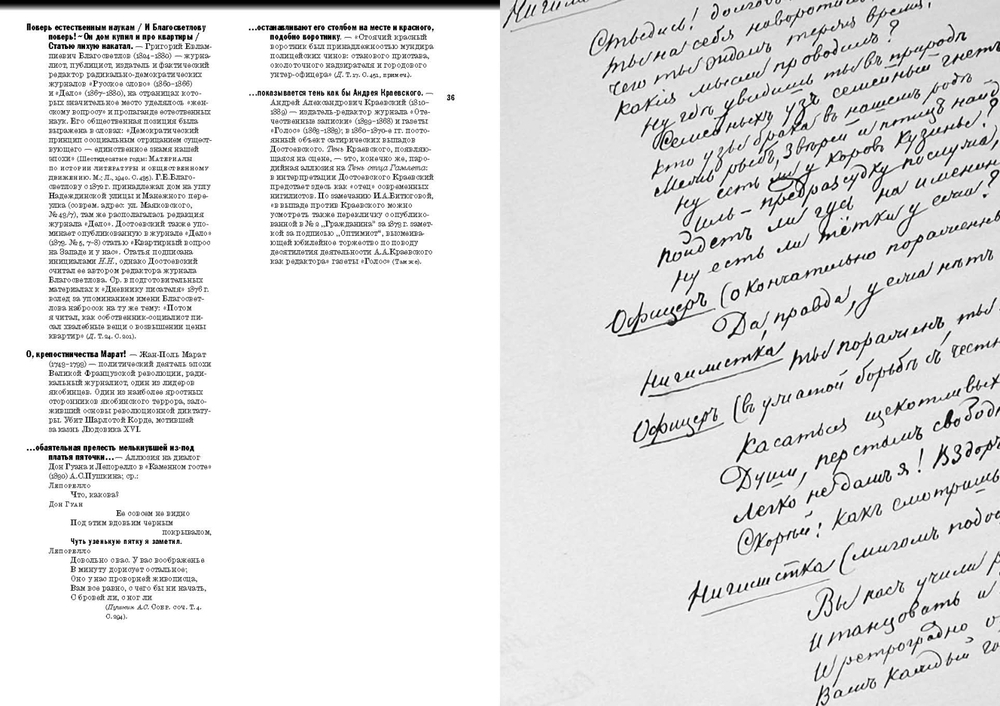 Поверь естественным наукам / И Благосветлову
поверь! ~ Он дом купил и про квартиры /
Статью лихую накатал. — Григорий Евлам-
пиевич Благосветлов (1824–1880) — журна-
лист, публицист, издатель и фактический
редактор радикально-демократических
журналов «Русское слово» (1860–1866)
и «Дело» (1867–1880), на страницах кото-
рых значительное место уделялось «жен-
скому вопросу» и пропаганде естественных
наук. Его общественная позиция была
выражена в словах: «Демократический
принцип социальным отрицанием сущест-
вующего — единственное знамя нашей
эпохи» (Шестидесятые годы: Материалы
по истории литературы и общественному
движению. М.; Л., 1940. С. 435). Г.Е.Благо-
светлову с 1872 г. принадлежал дом на углу
Надеждинской улицы и Манежного пере-
улка (соврем. адрес: ул. Маяковского,
№ 43/7), там же располагалась редакция
журнала «Дело». Достоевский также упо-
минает опубликованную в журнале «Дело»
(1873. № 5, 7–8) статью «Квартирный вопрос
на Западе и у нас». Статья подписана
инициалами Н.Н., однако Достоевский
считал ее автором редактора журнала
Благосветлова. Ср. в подготовительных
материалах к «Дневнику писателя» 1876 г.
вслед за упоминанием имени Благосвет-
лова набросок на ту же тему: «Потом
я читал, как собственник-социалист пи-
сал хвалебные вещи о возвышении цены
квартир» (Д. Т. 24. С. 201).
О, крепостничества Марат! — Жан-Поль Марат
(1743–1793) — политический деятель эпохи
Великой Французской революции, ради-
кальный журналист, один из лидеров
якобинцев. Один из наиболее яростных
сторонников якобинского террора, зало-
живший основы революционной диктату-
ры. Убит Шарлотой Корде, мстившей
за казнь Людовика XVI.
...обаятельная прелесть мелькнувшей из-под
платья пяточки... — Аллюзия на диалог
Дон Гуана и Лепорелло в «Каменном госте»
(1830) А.С.Пушкина; ср.:
Лепорелло
Что, какова?
Дон Гуан
Ее совсем не видно
Под этим вдовьим черным
покрывалом,
Чуть узенькую пятку я заметил.
Лепорелло
Довольно с вас. У вас воображенье
В минуту дорисует остальное;
Оно у нас проворней живописца,
Вам все равно, с чего бы ни начать,
С бровей ли, с ног ли
(Пушкин А.С. Собр. соч. Т. 4.
С. 294).
...останавливают его столбом на месте и красного,
подобно воротнику. — «Стоячий красный
воротник был принадлежностью мундира
полицейских чинов: станового пристава,
околоточного надзирателя и городового
унтер-офицера» (Д. Т. 17. С. 451, примеч.).
...показывается тень как бы Андрея Краевского. —
Андрей Александрович Краевский (1810–
1889) — издатель-редактор журнала «Оте-
чественные записки» (1839–1868) и газеты
«Голос» (1863–1883); в 1860–1870-е гг. посто-
янный объект сатирических выпадов
Достоевского. Тень Краевского, появляю-
щаяся на сцене, — это, конечно же, паро-
дийная аллюзия на Тень отца Гамлета:
в интерпретации Достоевского Краевский
предстает здесь как «отец» современных
нигилистов. По замечанию И.А.Битюговой,
«в выпаде против Краевского можно
усмотреть также перекличку с опублико-
ванной в № 2 „Гражданина“ за 1873 г. замет-
кой за подписью „Оптимист“, высмеива-
ющей юбилейное торжество по поводу
десятилетия деятельности А.А.Краевского
как редактора» газеты «Голос» (Там же).
36
Стыдись! долго
ты на себя наворотила
чего ты ждал теряя время,
какія мысли проводилъ?
Ну гдѣ увидишь ты въ природѣ
Семейныхъ узъ семейный гнетъ
кто узы брака въ нашемъ родѣ
Межь рыбъ, зверей и птицъ
Ну есть ли у коровъ кузины?
Иль – предразсудку послужа,
Пойдетъ ли гусь на именины
Ну есть ли тётка у ежа?
Офицеръ (окончательно пораженный
Да, правда, у ежа нѣтъ
Нигилистка
Ты пораженъ, ты
Офицеръ (въ участой борьбѣ съ
Касаться щекотливых
Души, перстамъ свобод
Легко не дамъ я! Вздоръ
Скорый! Какъ смотришь
Нигилистка (мигомъ
Вы насъ учили
И танцовать и
И ретроградно
Вамъ каждый